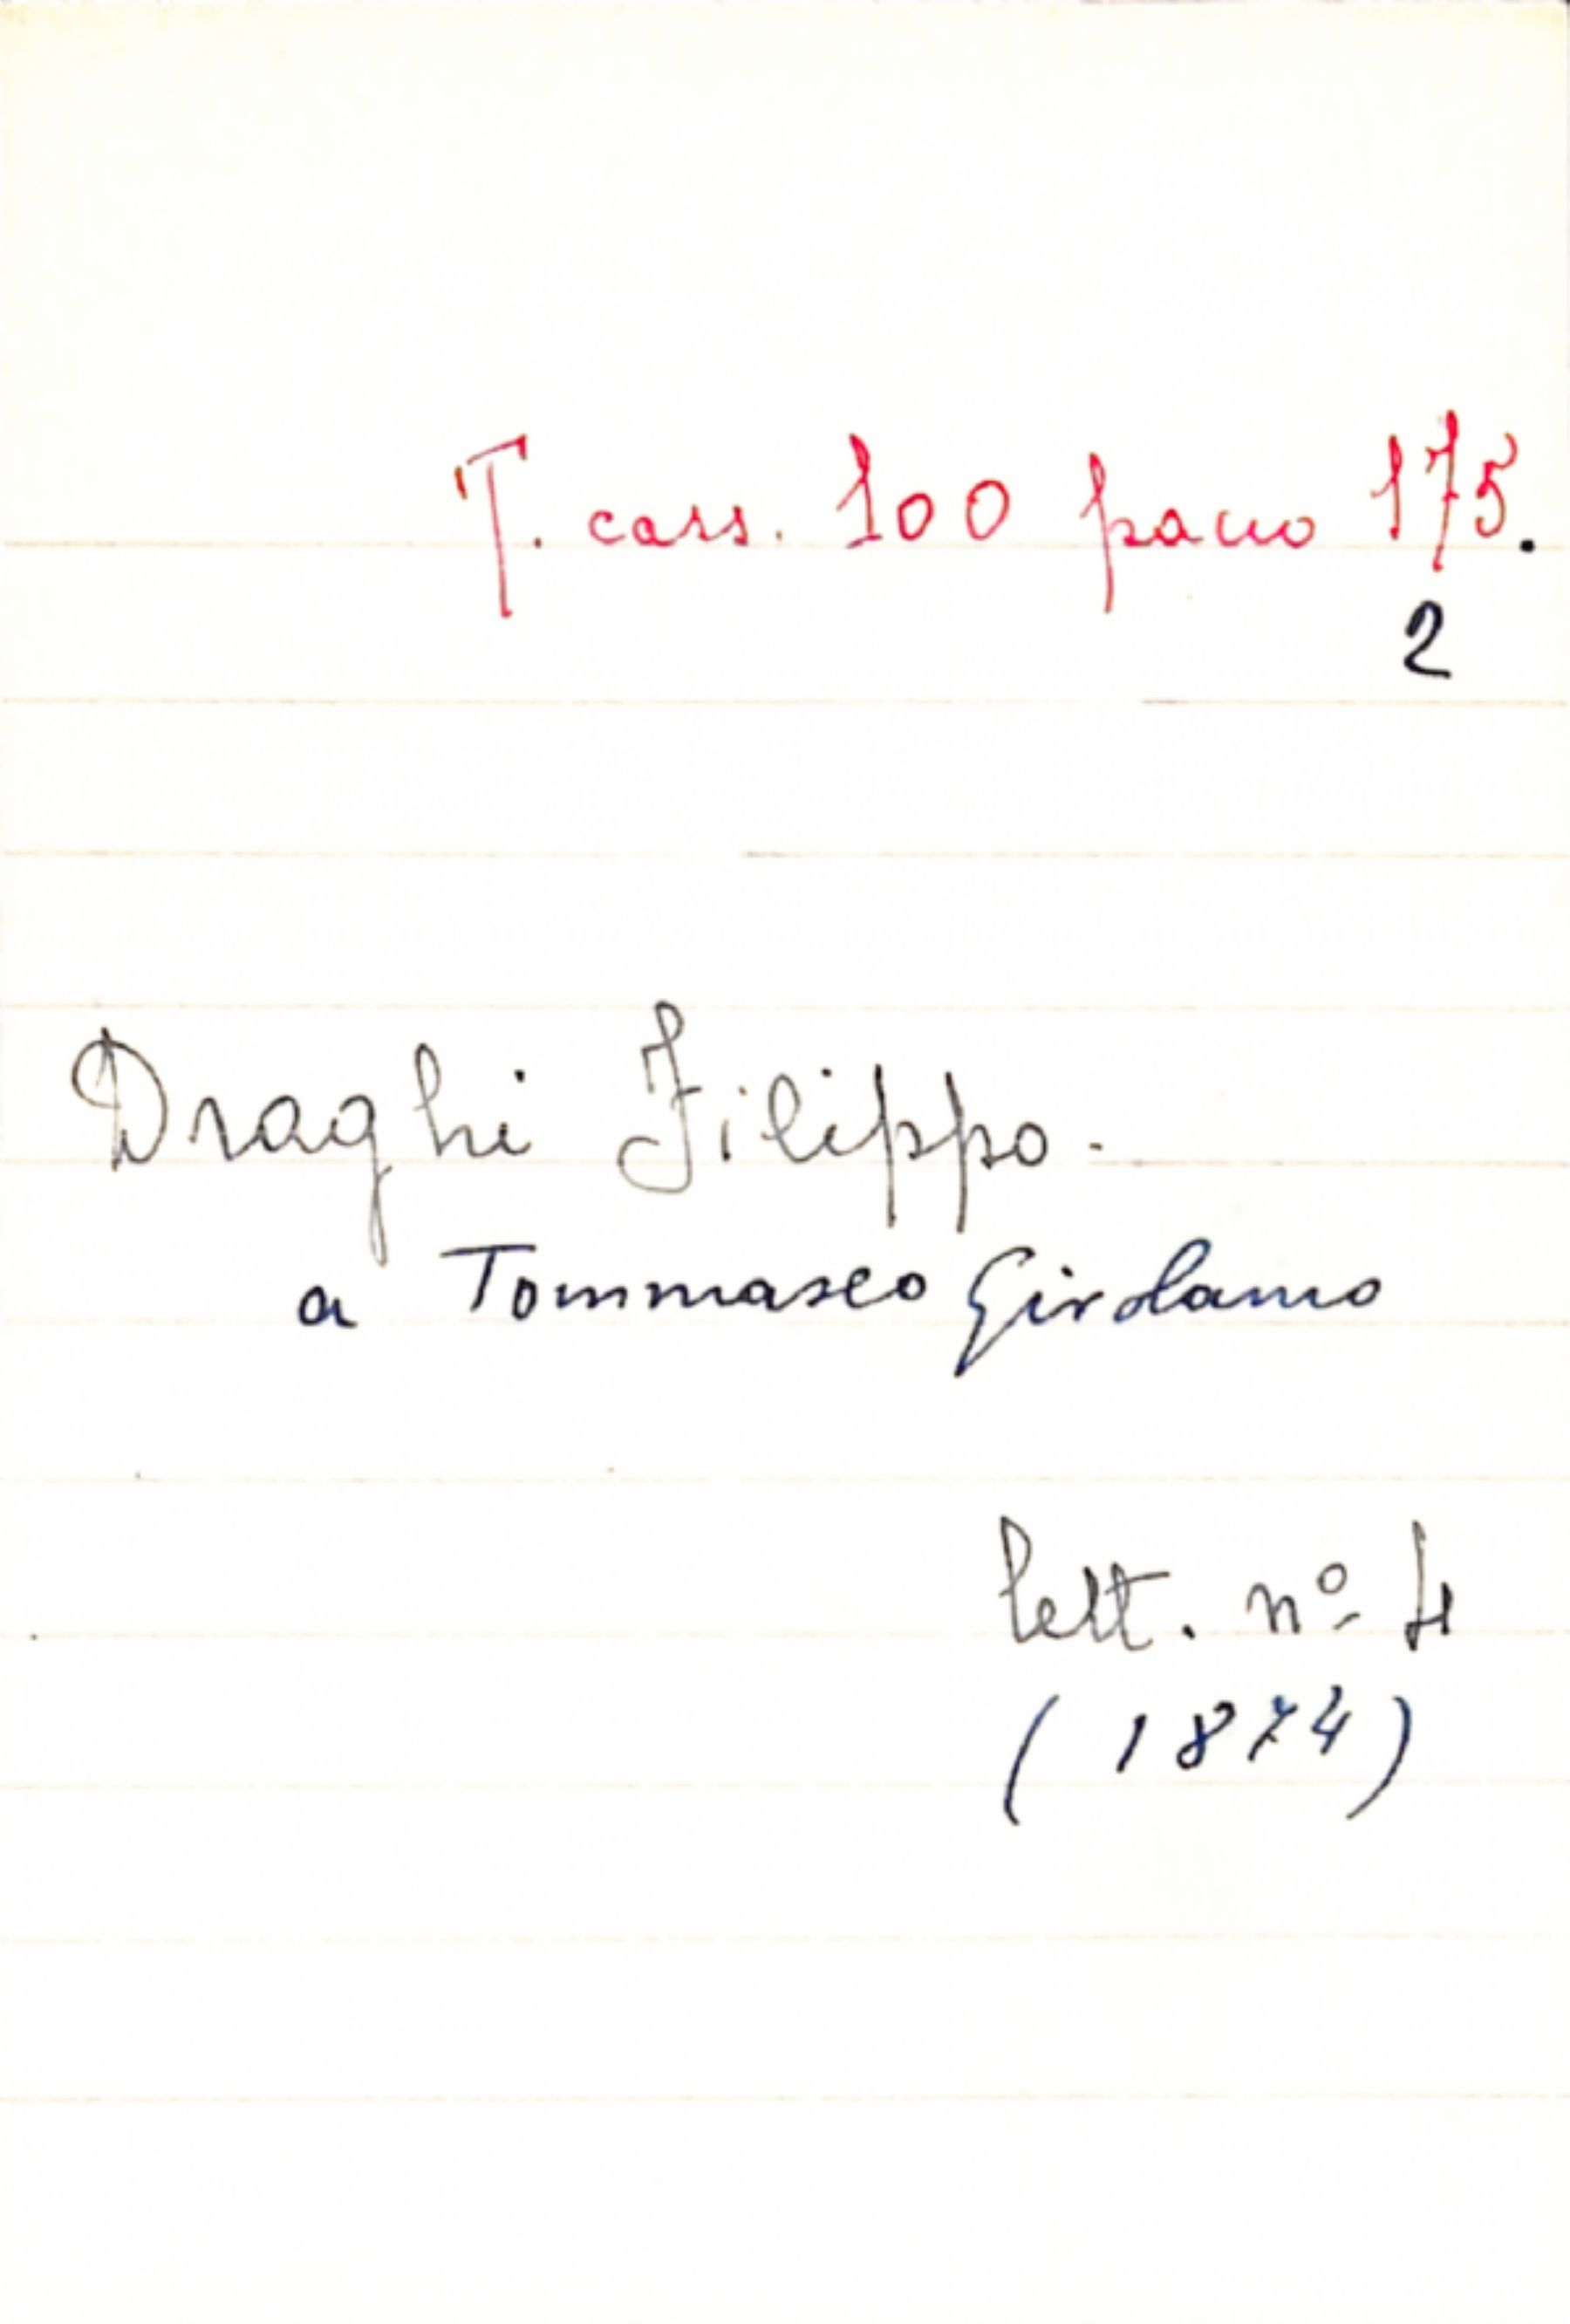 T. cass. 100 pacco 175.
2
Draghi Filippo.
a Tommaseo Girolamo
lett. nº 4
(1874)